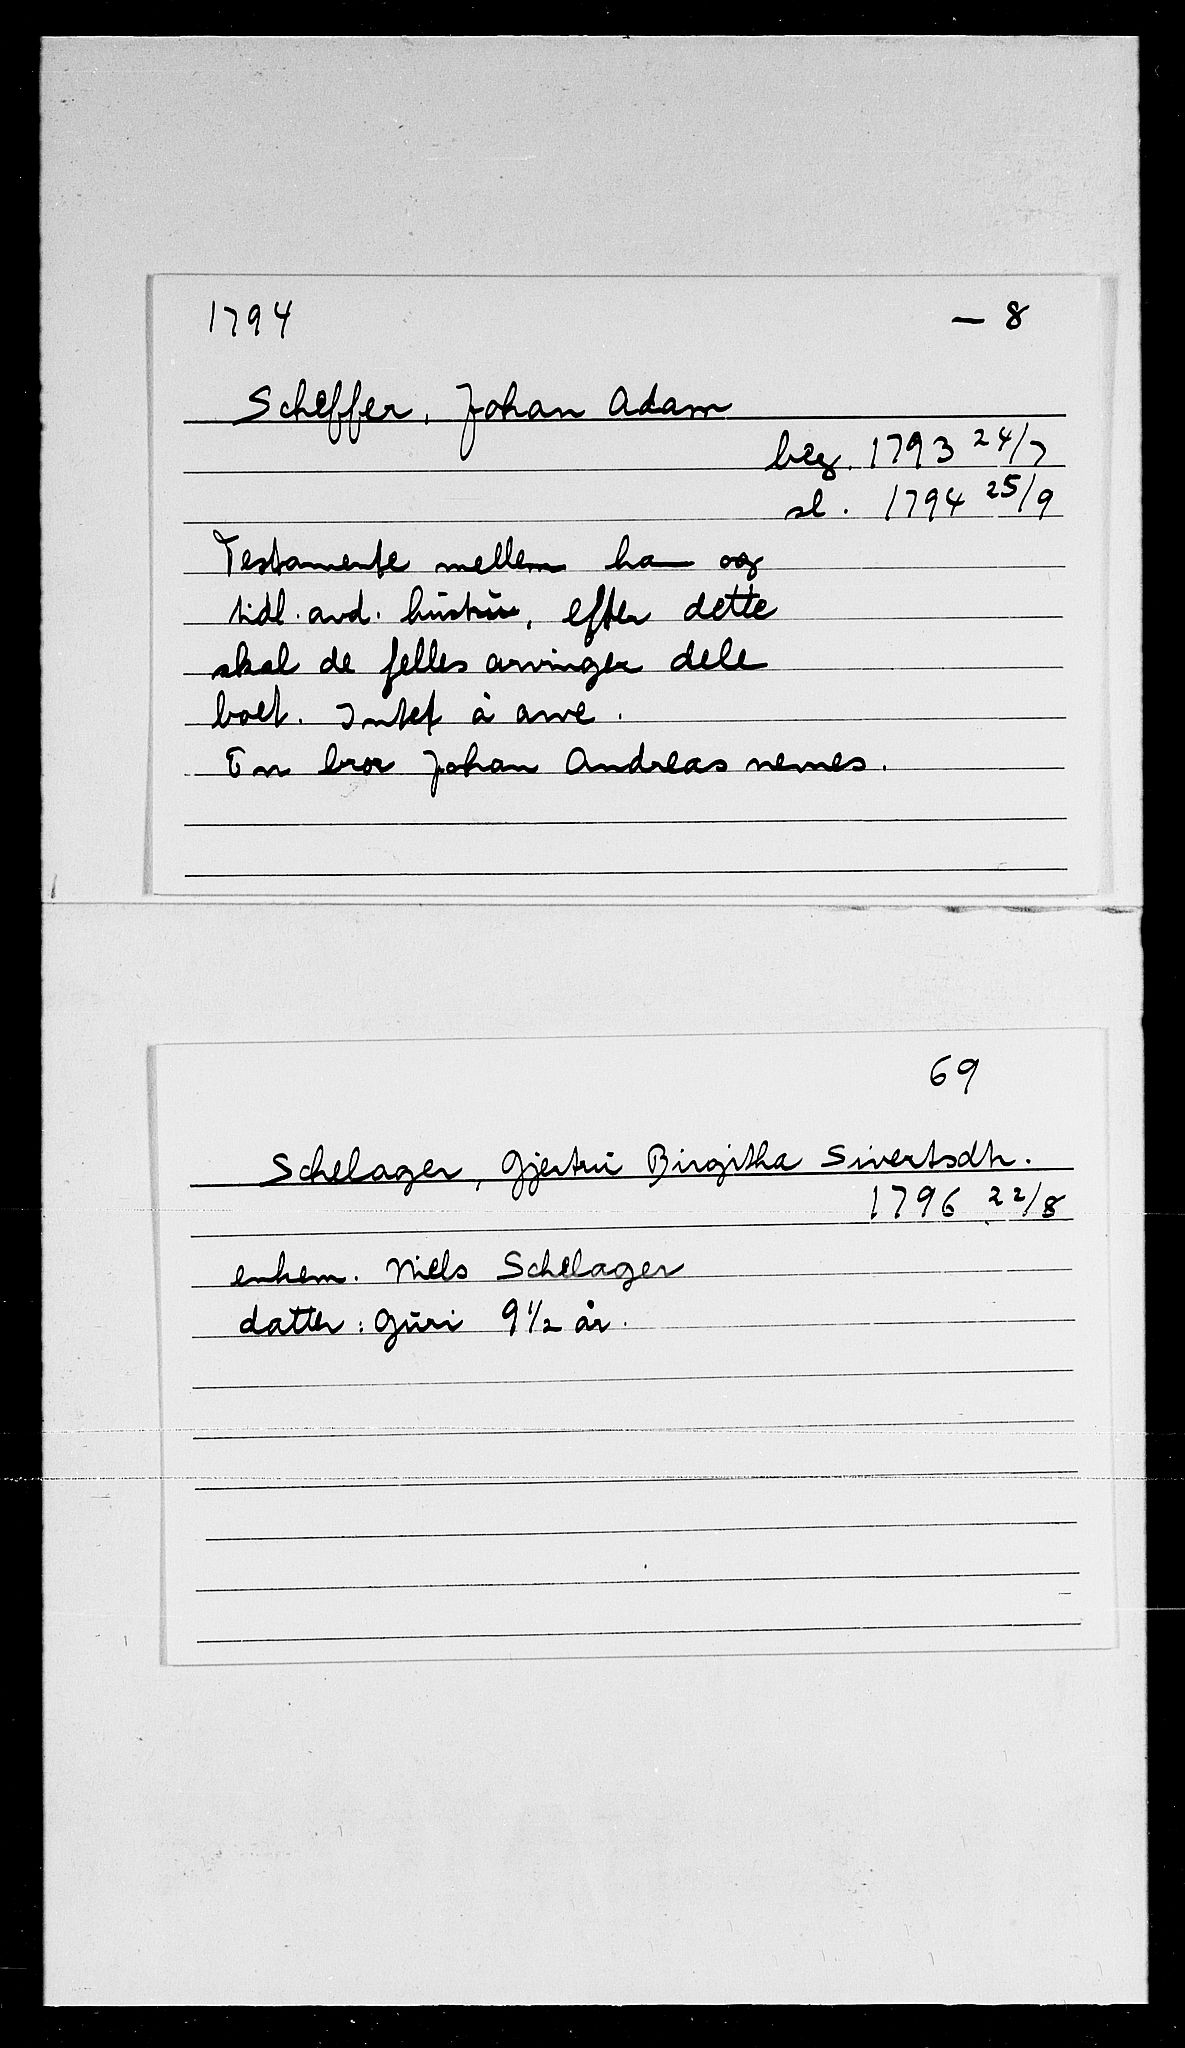 1794 — 8
Scheffer, Johan Adam
beg. 1793 24/7
sl. 1794 25/9
Testamente mellem ham og
tidl. avd. hustru, efter dette
skal de felles arvinger dele
boet. Intet å arve.
En bror Johan Andreas nemes.
69
Schelager, Gjertru Birgitha Sivertsdtr.
1796 22/8
enkem. Niels Schelager
datter: Guri 9 1/2 år.